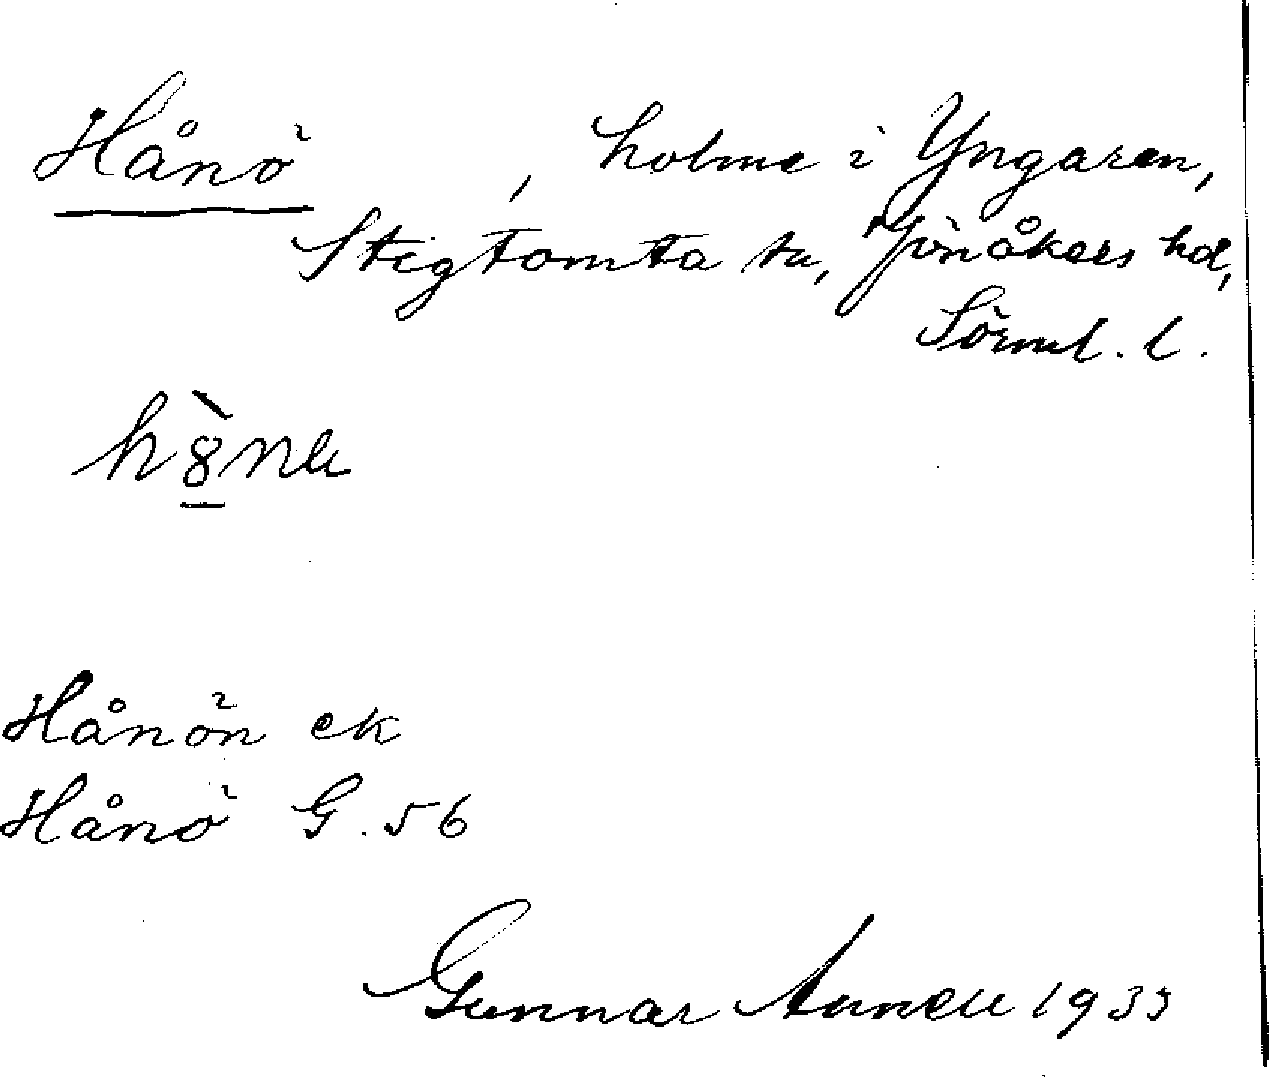 Hånö, holme i Yngaren,
Stigtomta sn, Jönåkers hd,
Sörml. l.
Hånön ek
Hånö G. 56
Gunnar Annell 1935